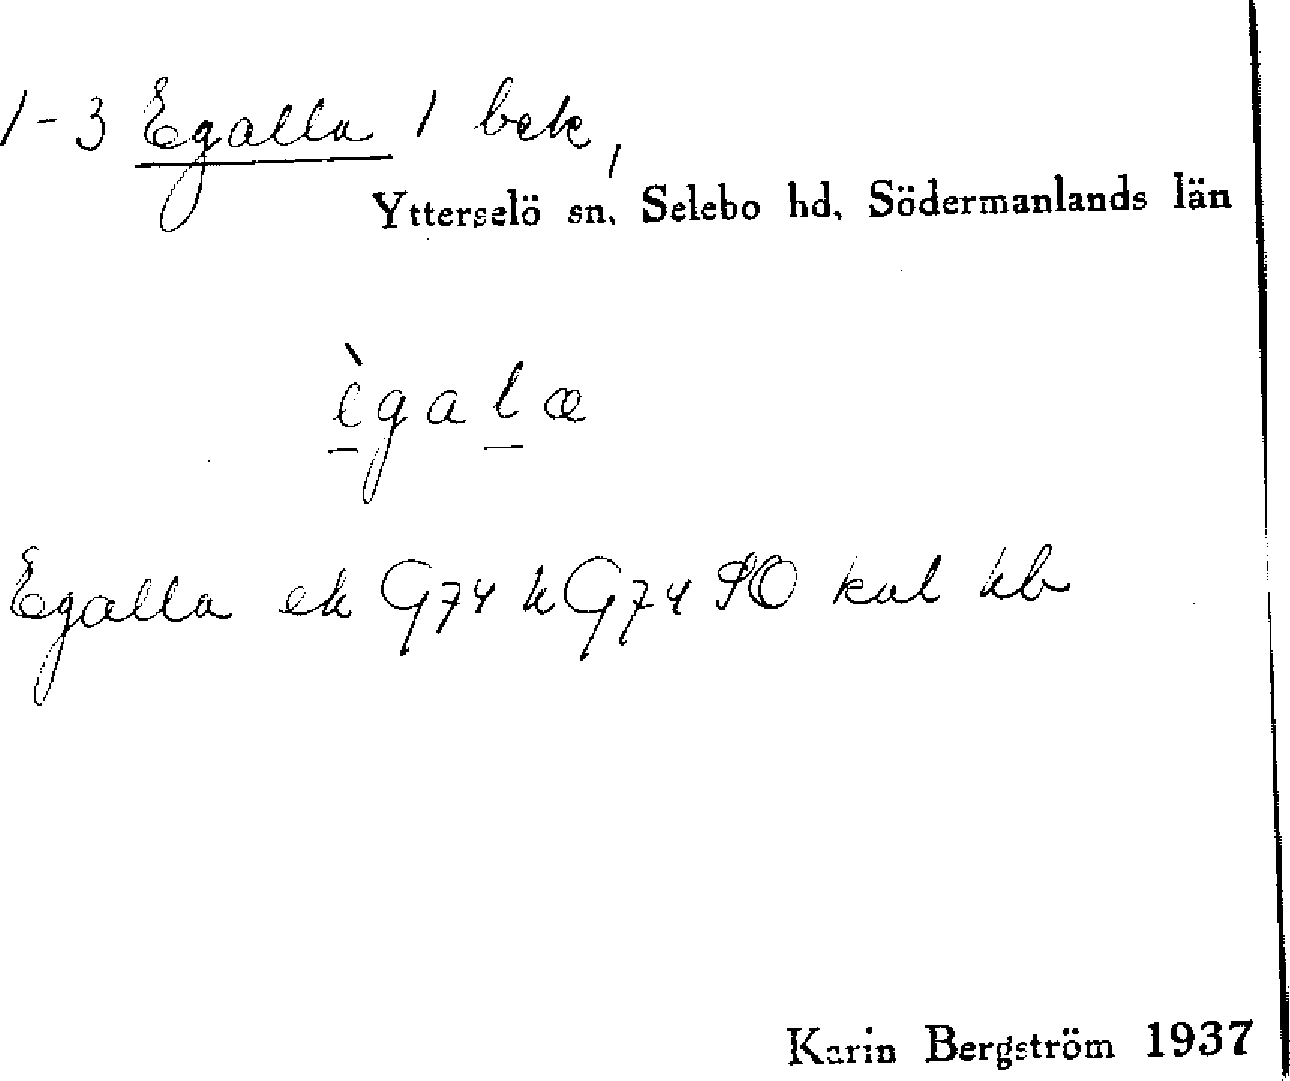 1-3 Egalla 1 bek,
Ytterselö sn. Selebo hd. Södermanlands län
ègala
Egalla ek G74 h G74 SO kal kb
Karin Bergström 1937